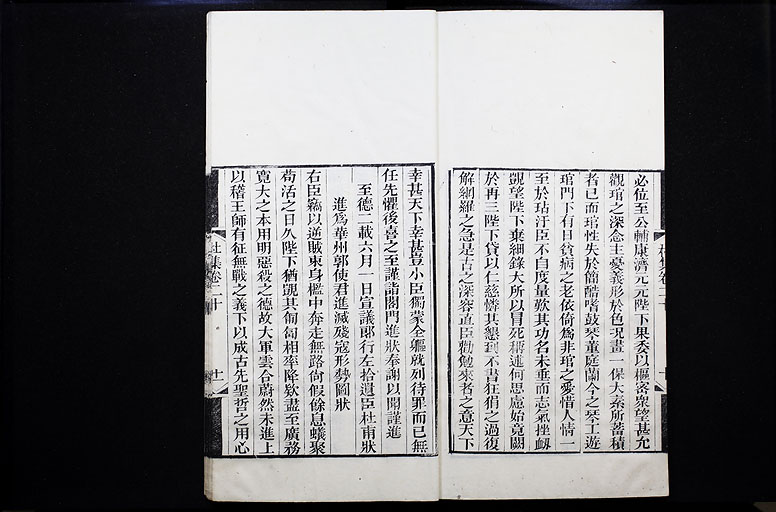 必位至公輔康濟元元陛下果委以樞密衆望甚允
觀琯之深念主憂義形於色況畫一保大素所蓄積
者已而琯性失於簡酷嗜鼓琴董庭蘭今之琴工遊
琯門下有日貧病之老依倚為非琯之愛惜人情一
至於玷汙臣不自度量歎其功名未垂而志氣挫衂
覬望陛下棄細錄大所以冒死稱述何思慮始竟闕
於再三陛下貸以仁慈憐其懇到不書狂狷之過復
解網羅之急是古之深容直臣勸勉來者之意天下
幸甚天下幸甚豈小臣獨蒙全軀就列待罪而已無
任先懼後喜之至謹詣閤門進狀奉謝以聞謹進
至德二載六月一日宣議郎行左拾遺臣杜甫狀
進為華州郭使君進滅殘寇形勢圖狀
右臣竊以逆賊束身檻中奔走無路尚假餘息蟻聚
苟活之日久陛下猶覬其匍匐相率降款盡至廣務
寬大之本用明惡殺之德故大軍雲合蔚然未進上
以稽王師有征無戰之義下以成古先聖哲之用心
杜集卷二十
十一